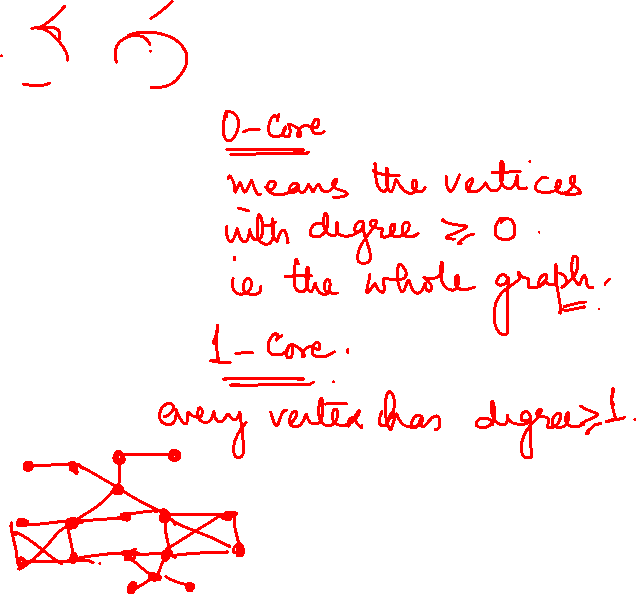 0-Core
means the vertices
with degree ≥ 0.
ie the whole graph.
1-Core.
every vertex has degree ≥ 1.